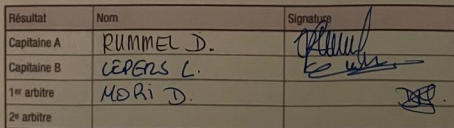 Résultat Nom Signature
Capitaine A RUMMEL D.
Capitaine B LEPERS L.
1er arbitre MORI D.
2e arbitre